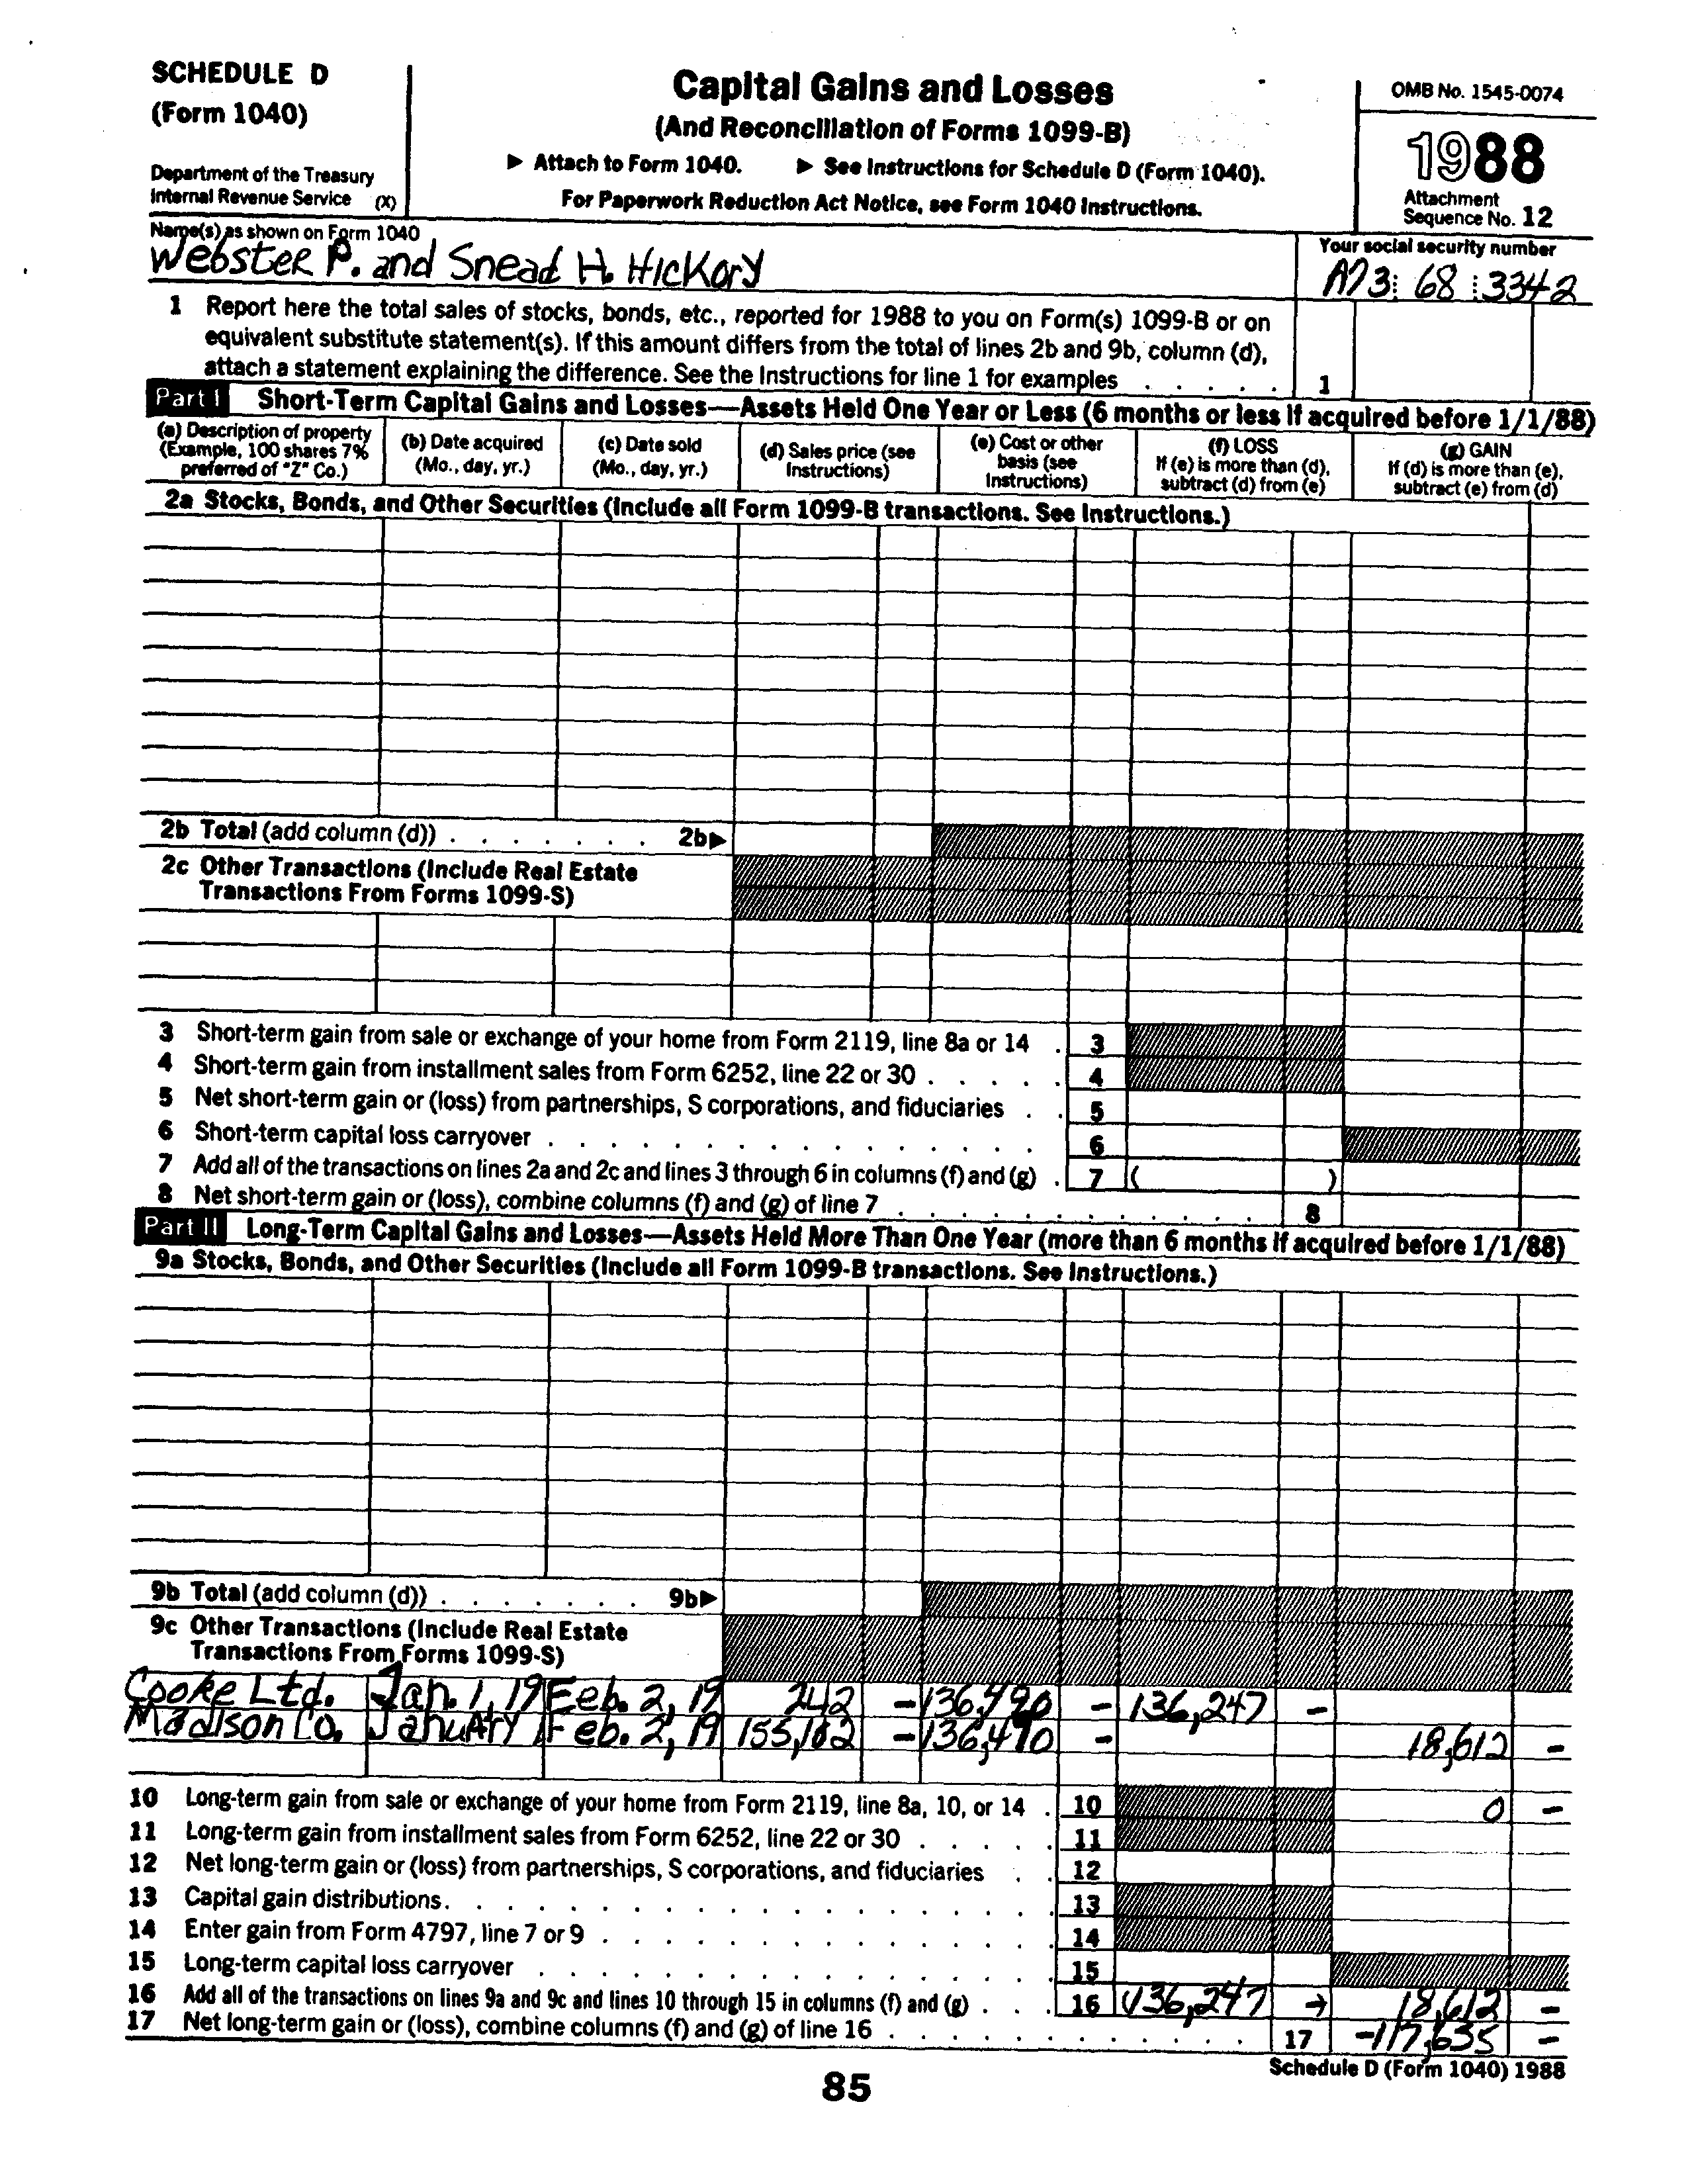 SCHEDULE D
(Form 1040)
Department of the Treasury
Internal Revenue Service (X)
Capital Gains and Losses
(And Reconciliation of Forms 1099-B)
▶ Attach to Form 1040. ▶ See Instructions for Schedule D (Form 1040).
For Paperwork Reduction Act Notice, see Form 1040 Instructions.
OMB No. 1545-0074
1988
Attachment
Sequence No. 12
Name(s) as shown on Form 1040
Webster P. and Snead H. Hickory
Your social security number
A73: 68 :3342
1 Report here the total sales of stocks, bonds, etc., reported for 1988 to you on Form(s) 1099-B or on
equivalent substitute statement(s). If this amount differs from the total of lines 2b and 9b, column (d),
attach a statement explaining the difference. See the Instructions for line 1 for examples . . . . . 1
Part I Short-Term Capital Gains and Losses—Assets Held One Year or Less (6 months or less if acquired before 1/1/88)
(a) Description of property
(Example, 100 shares 7%
preferred of "Z" Co.)
(b) Date acquired
(Mo., day, yr.)
(c) Date sold
(Mo., day, yr.)
(d) Sales price (see
Instructions)
(e) Cost or other
basis (see
Instructions)
(f) LOSS
If (e) is more than (d),
subtract (d) from (e)
(g) GAIN
If (d) is more than (e),
subtract (e) from (d)
2a Stocks, Bonds, and Other Securities (Include all Form 1099-B transactions. See Instructions.)
2b Total (add column (d)) . . . . . . . 2b▶
2c Other Transactions (Include Real Estate
Transactions From Forms 1099-S)
3 Short-term gain from sale or exchange of your home from Form 2119, line 8a or 14 . 3
4 Short-term gain from installment sales from Form 6252, line 22 or 30 . . . . . 4
5 Net short-term gain or (loss) from partnerships, S corporations, and fiduciaries . . 5
6 Short-term capital loss carryover . . . . . . . . . . . . . . . . 6
7 Add all of the transactions on lines 2a and 2c and lines 3 through 6 in columns (f) and (g) . 7 ( )
8 Net short-term gain or (loss), combine columns (f) and (g) of line 7 . . . . . . . . . . . . 8
Part II Long-Term Capital Gains and Losses—Assets Held More Than One Year (more than 6 months if acquired before 1/1/88)
9a Stocks, Bonds, and Other Securities (Include all Form 1099-B transactions. See Instructions.)
9b Total (add column (d)) . . . . . . . 9b▶
9c Other Transactions (Include Real Estate
Transactions From Forms 1099-S)
Cooke Ltd. Jan. 1, 19 Feb. 2, 19 242 - 136,490 - 136,247 -
Madison Co. January 1 Feb. 2, 19 155,102 - 136,490 - 18,612 -
10 Long-term gain from sale or exchange of your home from Form 2119, line 8a, 10, or 14 . 10 0 -
11 Long-term gain from installment sales from Form 6252, line 22 or 30 . . . . . 11
12 Net long-term gain or (loss) from partnerships, S corporations, and fiduciaries . . 12
13 Capital gain distributions. . . . . . . . . . . . . . . . . . . 13
14 Enter gain from Form 4797, line 7 or 9 . . . . . . . . . . . . . . 14
15 Long-term capital loss carryover . . . . . . . . . . . . . . . . 15
16 Add all of the transactions on lines 9a and 9c and lines 10 through 15 in columns (f) and (g) . . . 16 (136,247 -) 18,612 -
17 Net long-term gain or (loss), combine columns (f) and (g) of line 16 . . . . . . . . . . . . 17 -117,635 -
Schedule D (Form 1040) 1988
85